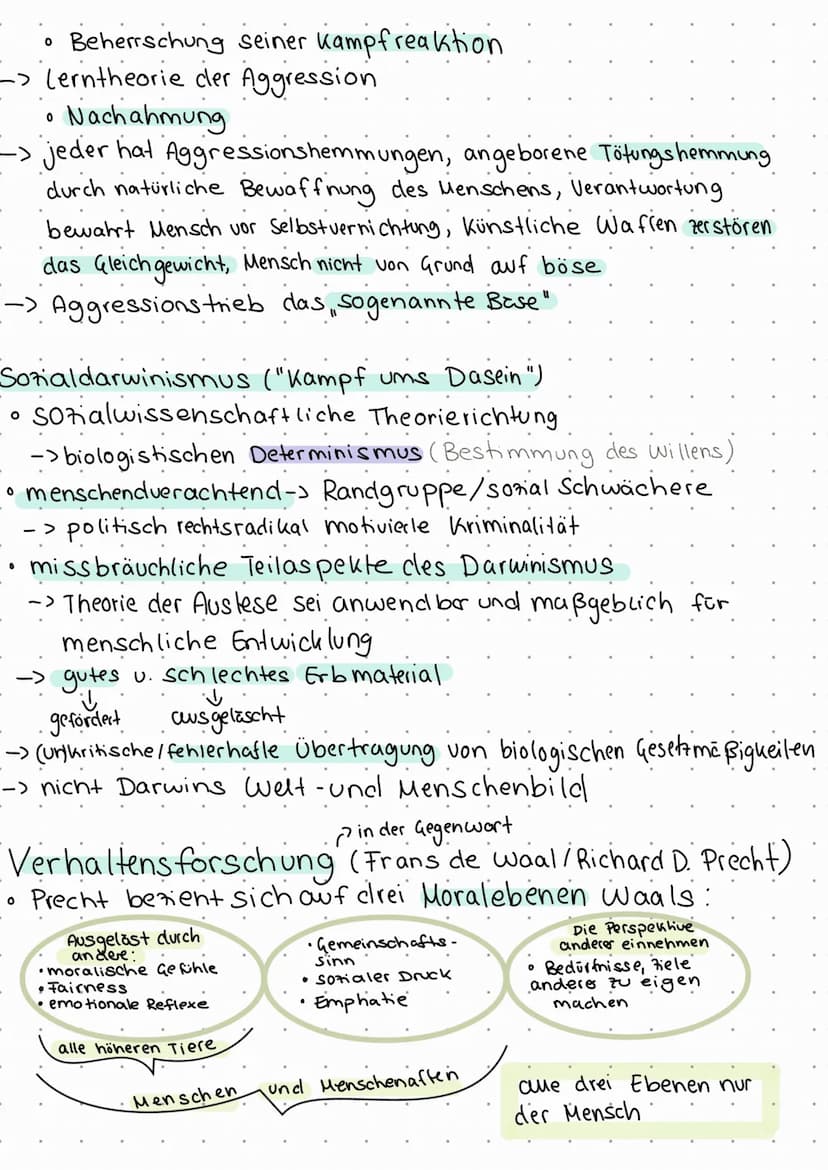 • Beherrschung seiner Kampfreaktion
-> Lerntheorie der Aggression
• Nachahmung
-> jeder hat Aggressionshemmungen, angeborene Tötungshemmung
durch natürliche Bewaffnung des Menschens, Verantwortung
bewahrt Mensch vor Selbstvernichtung, Künstliche Waffen zerstören
das Gleichgewicht, Mensch nicht von Grund auf böse
-> Aggressionstrieb das „sogenannte Böse"
Sozialdarwinismus ("Kampf ums Dasein")
• sozialwissenschaftliche Theorierichtung
-> biologistischen Determinismus (Bestimmung des Willens)
• menschenduerachtend -> Randgruppe/sozial Schwächere
-> politisch rechtsradikal motivierte Kriminalität
• missbräuchliche Teilaspekte des Darwinismus
-> Theorie der Auslese sei anwendbar und maßgeblich für
menschliche Entwicklung
-> gutes u. schlechtes Erbmaterial
↓ ↓
gefördert ausgelöscht
-> (un)kritische/fehlerhafte Übertragung von biologischen Gesetzmäßigkeiten
-> nicht Darwins Welt- und Menschenbild
↗ in der Gegenwart
Verhaltensforschung (Frans de Waal/Richard D. Precht)
• Precht bezieht sich auf drei Moralebenen Waals:
Ausgelöst durch
andere:
• moralische Gefühle
• Fairness
• emotionale Reflexe
• Gemeinschafts-
sinn
• sozialer Druck
• Emphatie
Die Perspektive
anderer einnehmen
• Bedürfnisse, Ziele
anderer zu eigen
machen
alle höheren Tiere
Menschen und Menschenaffen
alle drei Ebenen nur
der Mensch